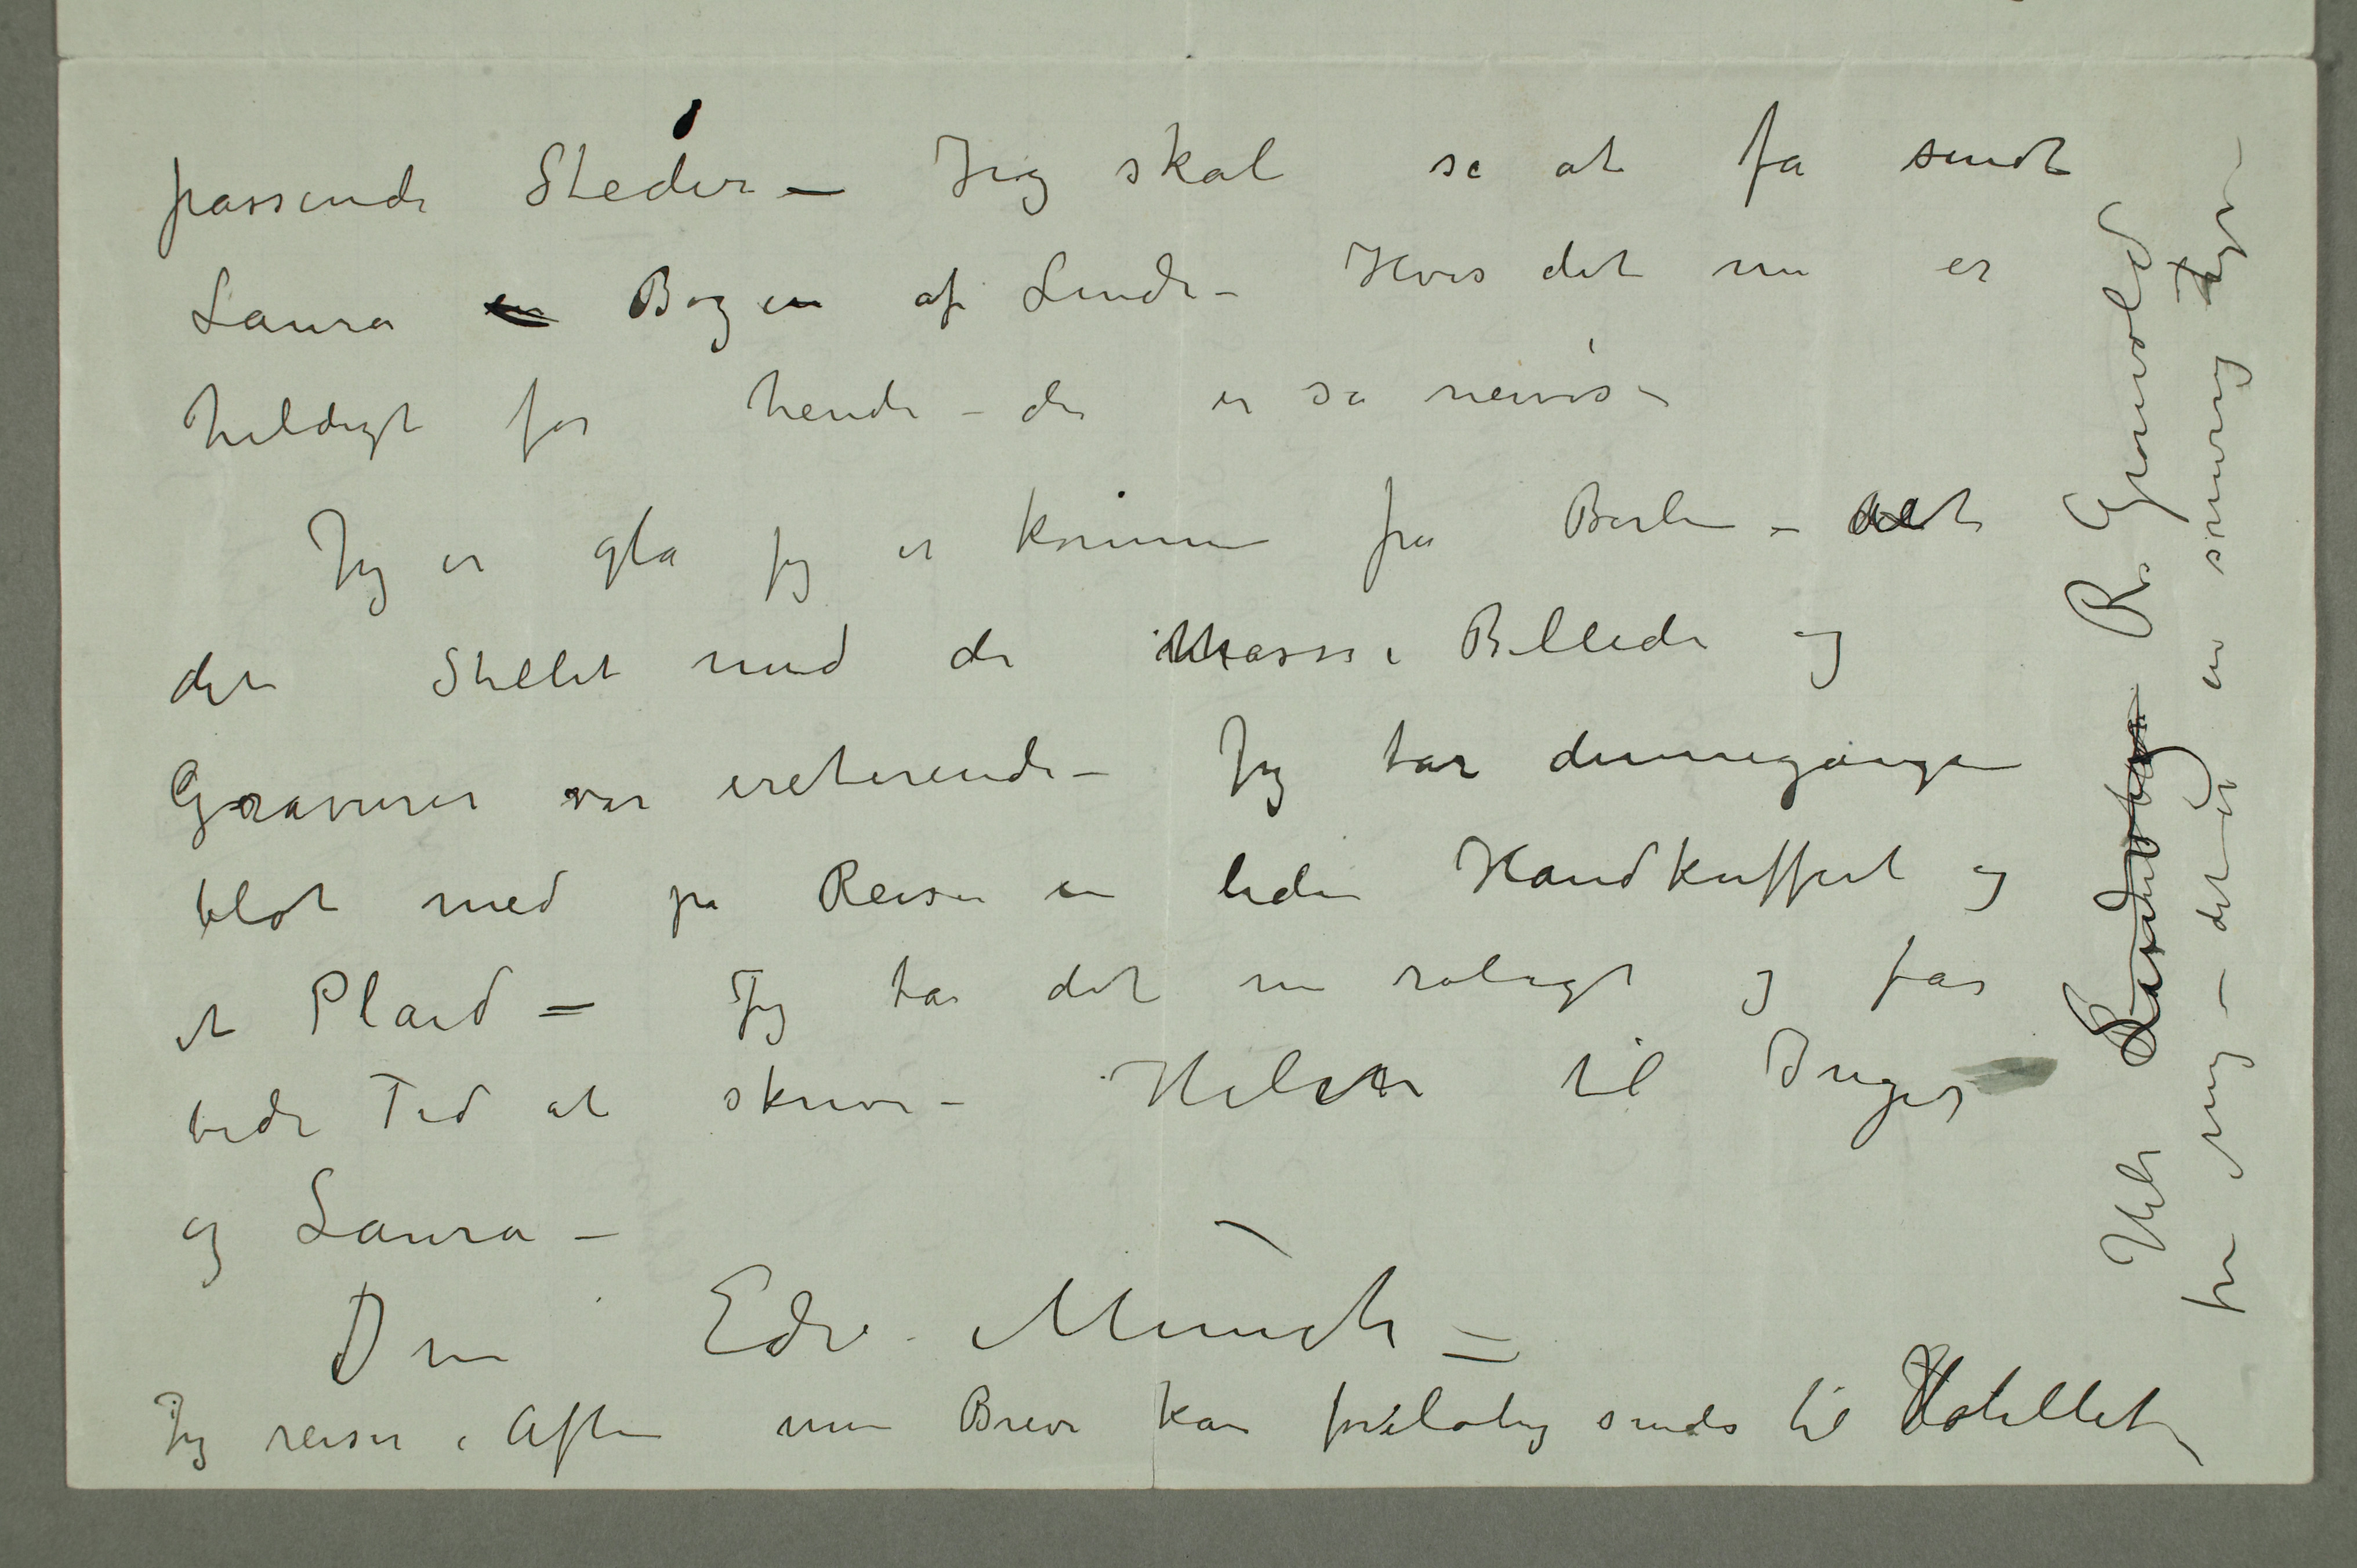 passende Steder – Jeg skal se at få sendt
Laura en Bogen af Linde – Hvis det nu er
heldigt for hende – der er så nervøs –
Jeg er gla jeg er kommen fra Berlin – det
det Stellet med de Masse Billeder og
Gravurer var ireterende – Jeg tar dennegangen
blot med på Reisen en liden Handkuffert og
et Plaid – Jeg tar det nu roligt og får
bedre Tid at skrive – Hilsen til Inger
og Laura –
Din Edv. Munch –
Jeg reiser i Aften min Breve kan foreløbig sendes til Hotellet
Hils R. Grønvold
fra mig – det er en